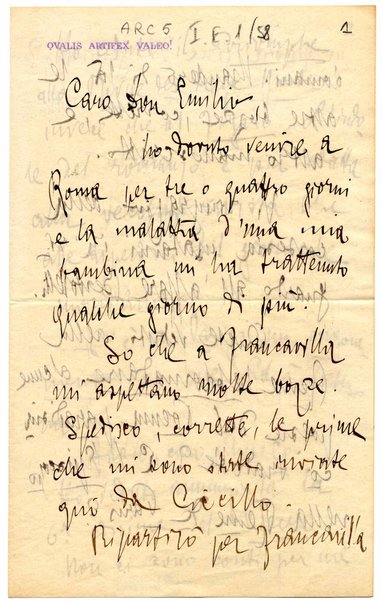 ARC 5 I E 1/58 1
QVALIS ARTIFEX VALEO!
Caro don Emilio
ho dovuto venire a
Roma per tre o quattro giorni
e la malattia d'una mia
bambina m'ha trattenuto
qualche giorno di più.
So che a Francavilla
mi aspettano molte bozze.
Spedisco, corrette, le prime
che mi sono state inviate
qui da Ciccillo.
Ripartirò per Francavilla